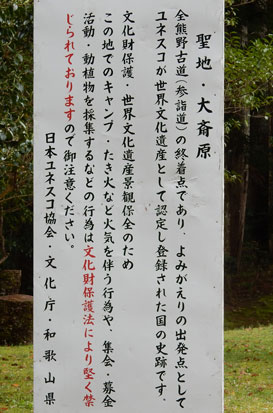 聖地・大斎原
全熊野古道(参詣道)の終着点であり、よみがえりの出発点として
ユネスコが世界文化遺産として認定し登録された国の史跡です.
文化財保護・世界文化遺産景観保全のため
この地でのキャンプ・たき火など火気を伴う行為や、集会・募金
活動・動植物を採集するなどの行為は文化財保護法により堅く禁
じられておりますので御注意ください。
日本ユネスコ協会・文化庁・和歌山県